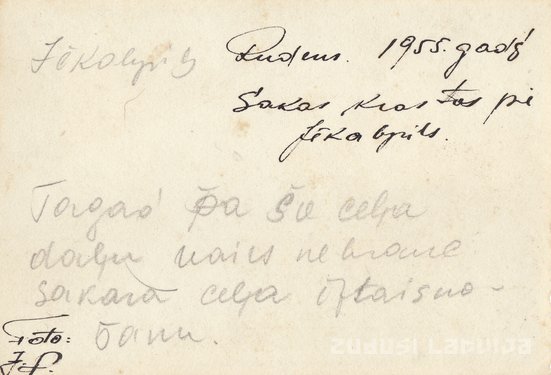 Jēkabpils
Rudens. 1955. gadš
Sakas krastos pie
Jēkabpils.
Tagad pa šo ceļa
daļu vairs nebrauc
sakarā ceļa iztaisno-
šanu.
Foto:
J.P.
Zudusī Latvija